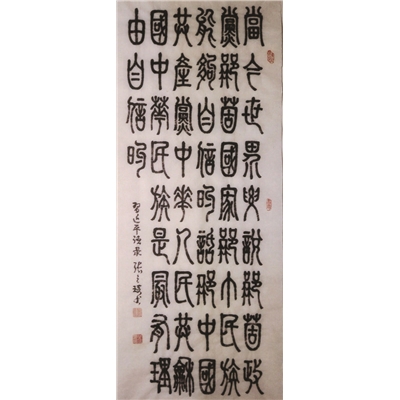 當今世界要說那箇政
黨那箇國家那个民族
能夠自信的話那中國
共產黨中華人民共龢
國中華民族是最有理
由自信的
習近平語录 張